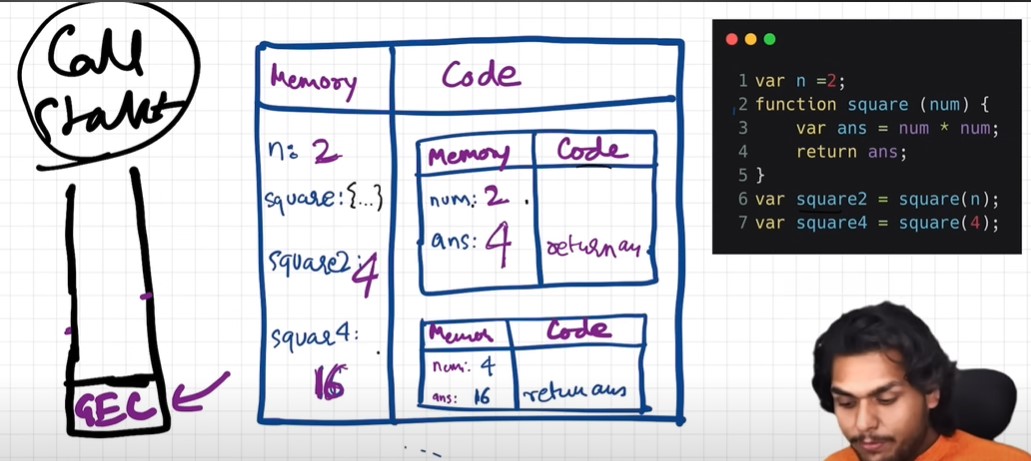 Call
Stack
GEC
Memory
Code
n: 2
square:{...}
square2:4
squar4:
16
Memory
Code
num: 2
ans: 4
return an
Memor
Code
num: 4
ans: 16
return ans
1 var n =2;
2 function square (num) {
3 var ans = num * num;
4 return ans;
5 }
6 var square2 = square(n);
7 var square4 = square(4);